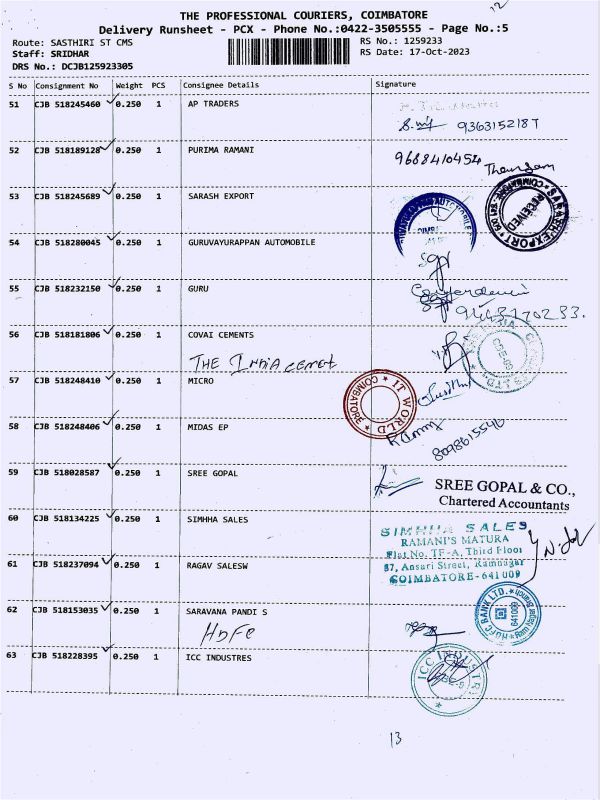 12
THE PROFESSIONAL COURIERS, COIMBATORE
Delivery Runsheet - PCX - Phone No.:0422-3505555 - Page No.:5
Route: SASTHIRI ST CMS
RS No.: 1259233
Staff: SRIDHAR
RS Date: 17-Oct-2023
DRS No.: DCJB125923305
S No Consignment No Weight PCS Consignee Details Signature
51 CJB 518245460 0.250 1 AP TRADERS
9363152187
52 CJB 518189128 0.250 1 PURIMA RAMANI
9688410454
53 CJB 518245689 0.250 1 SARASH EXPORT
RECEIVED
54 CJB 518280045 0.250 1 GURUVAYURAPPAN AUTOMOBILE
55 CJB 518232150 0.250 1 GURU
56 CJB 518181806 0.250 1 COVAI CEMENTS
THE India cemet
57 CJB 518248410 0.250 1 MICRO
IT WORLD
COIMBATORE
58 CJB 518248406 0.250 1 MIDAS EP
8098615546
59 CJB 518028587 0.250 1 SREE GOPAL
SREE GOPAL & CO.,
Chartered Accountants
60 CJB 518134225 0.250 1 SIMHHA SALES
SIMHHA SALES
RAMANI'S MATURA
Flat No. TF-A, Third Floor
87, Ansari Street, Ramnagar
COIMBATORE-641 009
61 CJB 518237094 0.250 1 RAGAV SALESW
62 CJB 518153035 0.250 1 SARAVANA PANDI S
HDFC
HDFC BANK LTD.
641009
63 CJB 518228395 0.250 1 ICC INDUSTRES
13